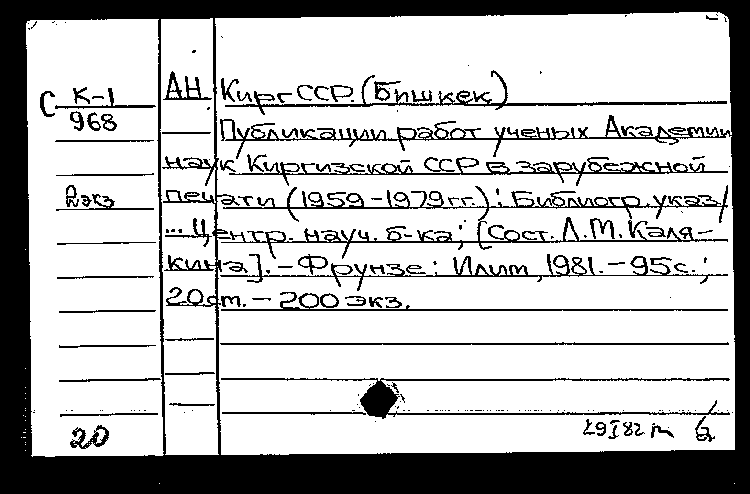 С К-1 АН КиргССР. (Бишкек)
968 Публикации работ ученых Академии
наук Киргизской ССР в зарубежной
2экз печати (1959-1979гг.): Библиогр. указ/
... Центр. науч. б-ка; [Сост. Л.М. Каля-
кина]. - Фрунзе: Илим, 1981. - 95с.;
20см. - 200 экз.
20 29 I 82